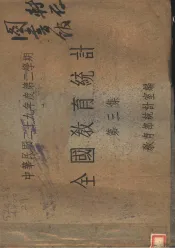 圖書館
中華民國二十九年度第二學期
全國教育統計
第三集
教育部統計室編